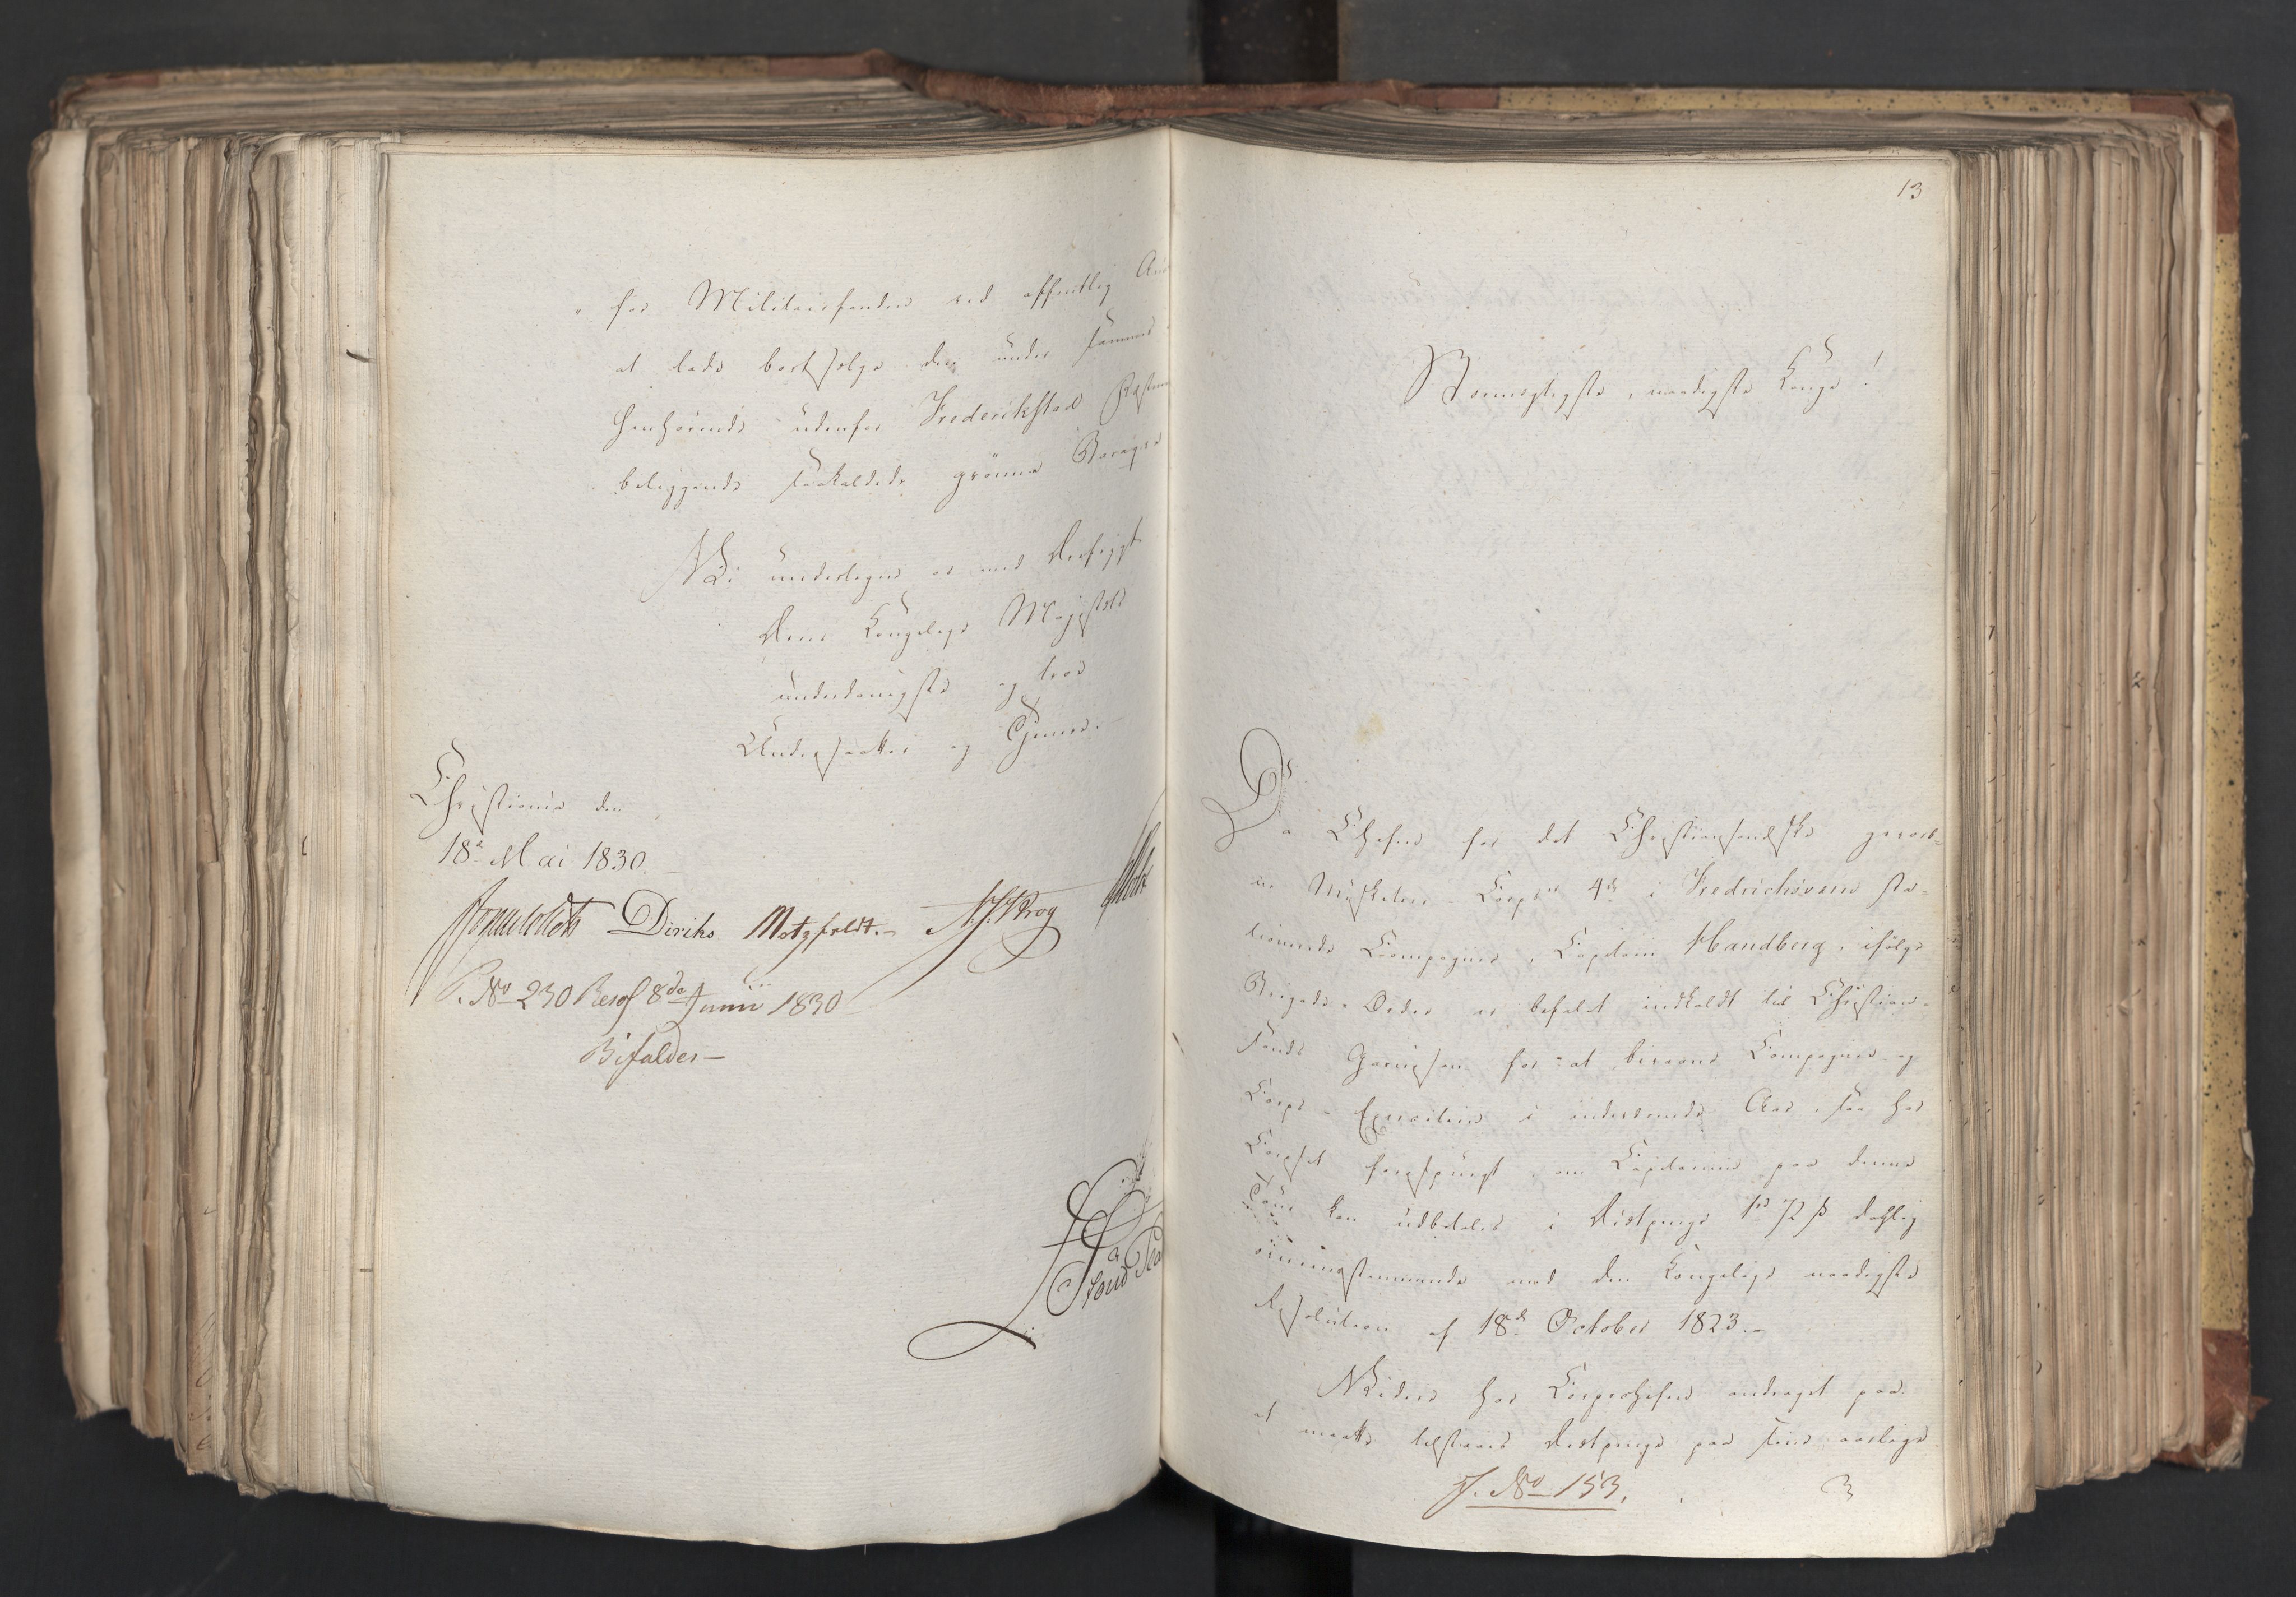 for Militairfonden ved offentlig
at lade bortsælge den under samme
henhørende udenfor Frederikstad
beliggende saakaldede grønne Baraque
Vi undertegne os med Dybeste
Deres Kongelige Majestæts
underdanigste og troe
Undersaatter og Tjenere.
Christiania den
18de Mai 1830.
Diriks Motzfeldt.- Krog
P. No 230 Resol 8de Junii 1830
Bifaldes-
13
Stormægtigste, naadigste Konge!
Da Chefen for det Christiansandske gevorb-
ne Musketeer-Corpses 4de i Fredrichsværn sta-
tionerede Compagnie, Capitain Handberg, ifølge
Brigade-Ordre er befalet indkaldt til Christian-
sands Garnison for at bivaane Compagnie- og
Corps-Exercitien i indeværende Aar, saa har
Corpset forespurgt, om Capitainen paa denne
Tour kan udbetales i Diætpenge 1sp 72 ß daglig
overeensstemmende med den Kongelige naadigste
Resolution af 18de October 1823.-
Videre har Corpschefen andraget paa
at maatte tilstaaes Diætpenge paa sine aarlige
J. No 153.
3